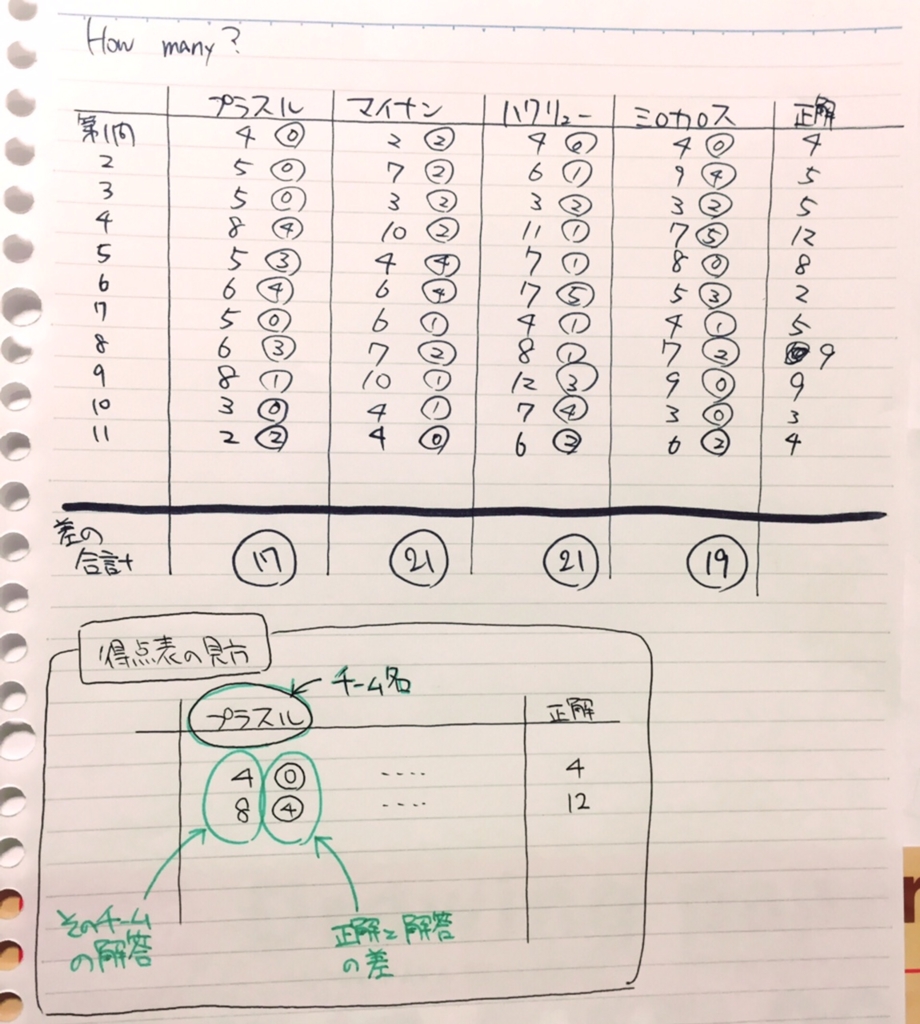 How many?
プラスル マイナン ハワリュー ミロカロス 正解
第1問 4 ⓪ 2 ② 4 ⓪ 4 ⓪ 4
2 5 ⓪ 7 ② 6 ① 9 ④ 5
3 5 ⓪ 3 ② 3 ② 3 ② 5
4 8 ④ 10 ② 11 ① 7 ⑤ 12
5 5 ③ 4 ④ 7 ① 8 ⓪ 8
6 6 ④ 6 ④ 7 ⑤ 5 ③ 2
7 5 ⓪ 6 ① 4 ① 4 ① 5
8 6 ③ 7 ② 8 ① 7 ② 9
9 8 ① 10 ① 12 ③ 9 ⓪ 9
10 3 ⓪ 4 ① 7 ④ 3 ⓪ 3
11 2 ② 4 ⓪ 6 ② 6 ② 4
差の
合計 ⑰ ㉑ ㉑ ⑲
得点表の見方
チーム名
プラスル 正解
4 ⓪ ‥‥ 4
8 ④ ‥‥ 12
そのチーム
の解答
正解と解答
の差